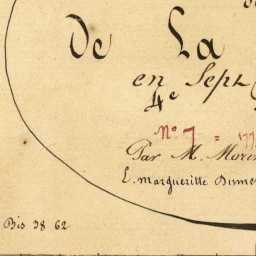 De La
en Sept
4e
No 7 = 177
Par M. Morin
L. margueritte Dume
Bis 38 62